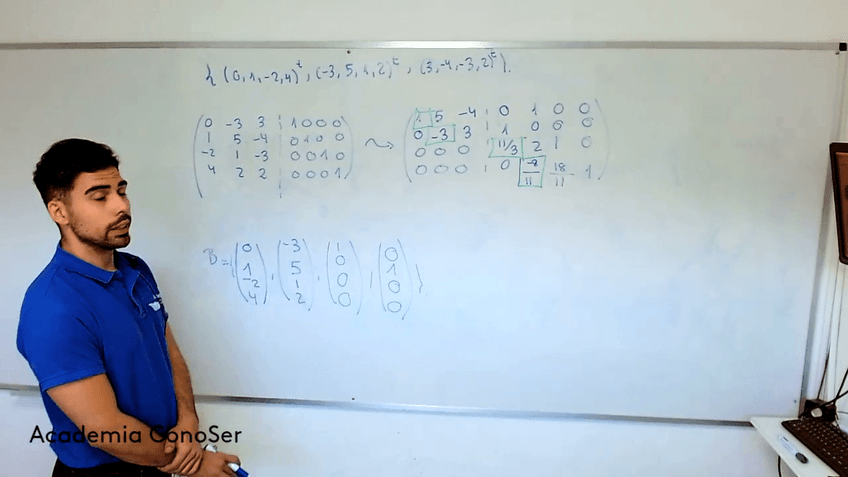 { (0,1,-2,4)ᵗ, (-3,5,1,2)ᵗ, (3,-4,-3,2)ᵗ }.
0 -3 3 | 1 0 0 0
1 5 -4 | 0 1 0 0
-2 1 -3 | 0 0 1 0
4 2 2 | 0 0 0 1
~
1 5 -4 | 0 1 0 0
0 -3 3 | 1 0 0 0
0 0 0 | 11/3 2 1 0
0 0 0 | 0 -8/11 18/11 1
B = { (0 1 -2 4), (-3 5 1 2), (1 0 0 0), (0 1 0 0) }
Academia ConoSer